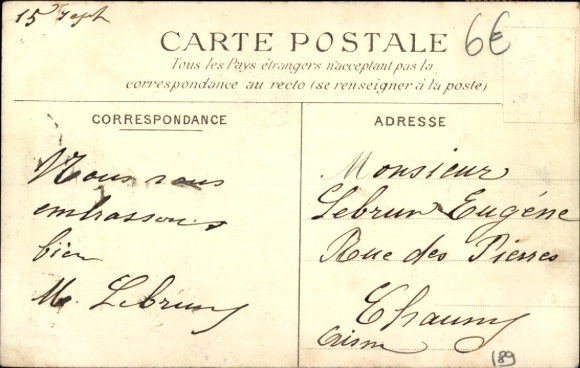 15 Sept
6€
CARTE POSTALE
Tous les Pays étrangers n'acceptant pas la
correspondance au recto (se renseigner à la poste)
CORRESPONDANCE
Nous vous
embrassons
bien
M. Lebrun
ADRESSE
Monsieur
Lebrun Eugéne
Rue des Pierres
Chauny
Aisne
189